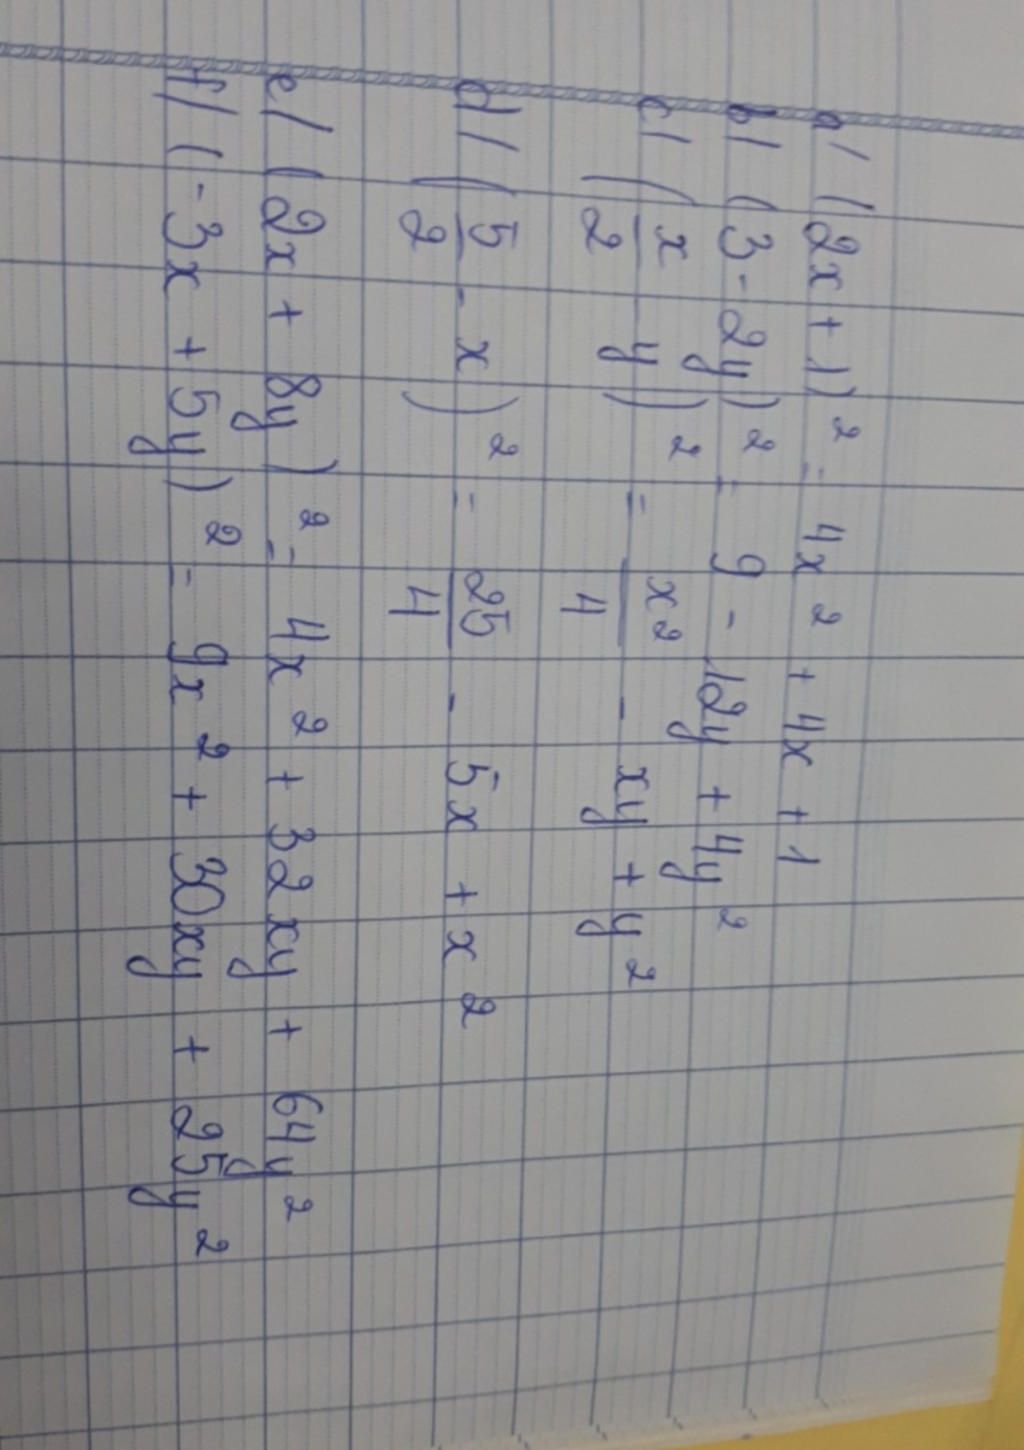 a/ (2x + 1)² = 4x² + 4x + 1
b/ (3 - 2y)² = 9 - 12y + 4y²
c/ (x/2 - y)² = x²/4 - xy + y²
d/ (5/2 - x)² = 25/4 - 5x + x²
e/ (2x + 8y)² = 4x² + 32xy + 64y²
f/ (-3x + 5y)² = 9x² + 30xy + 25y²